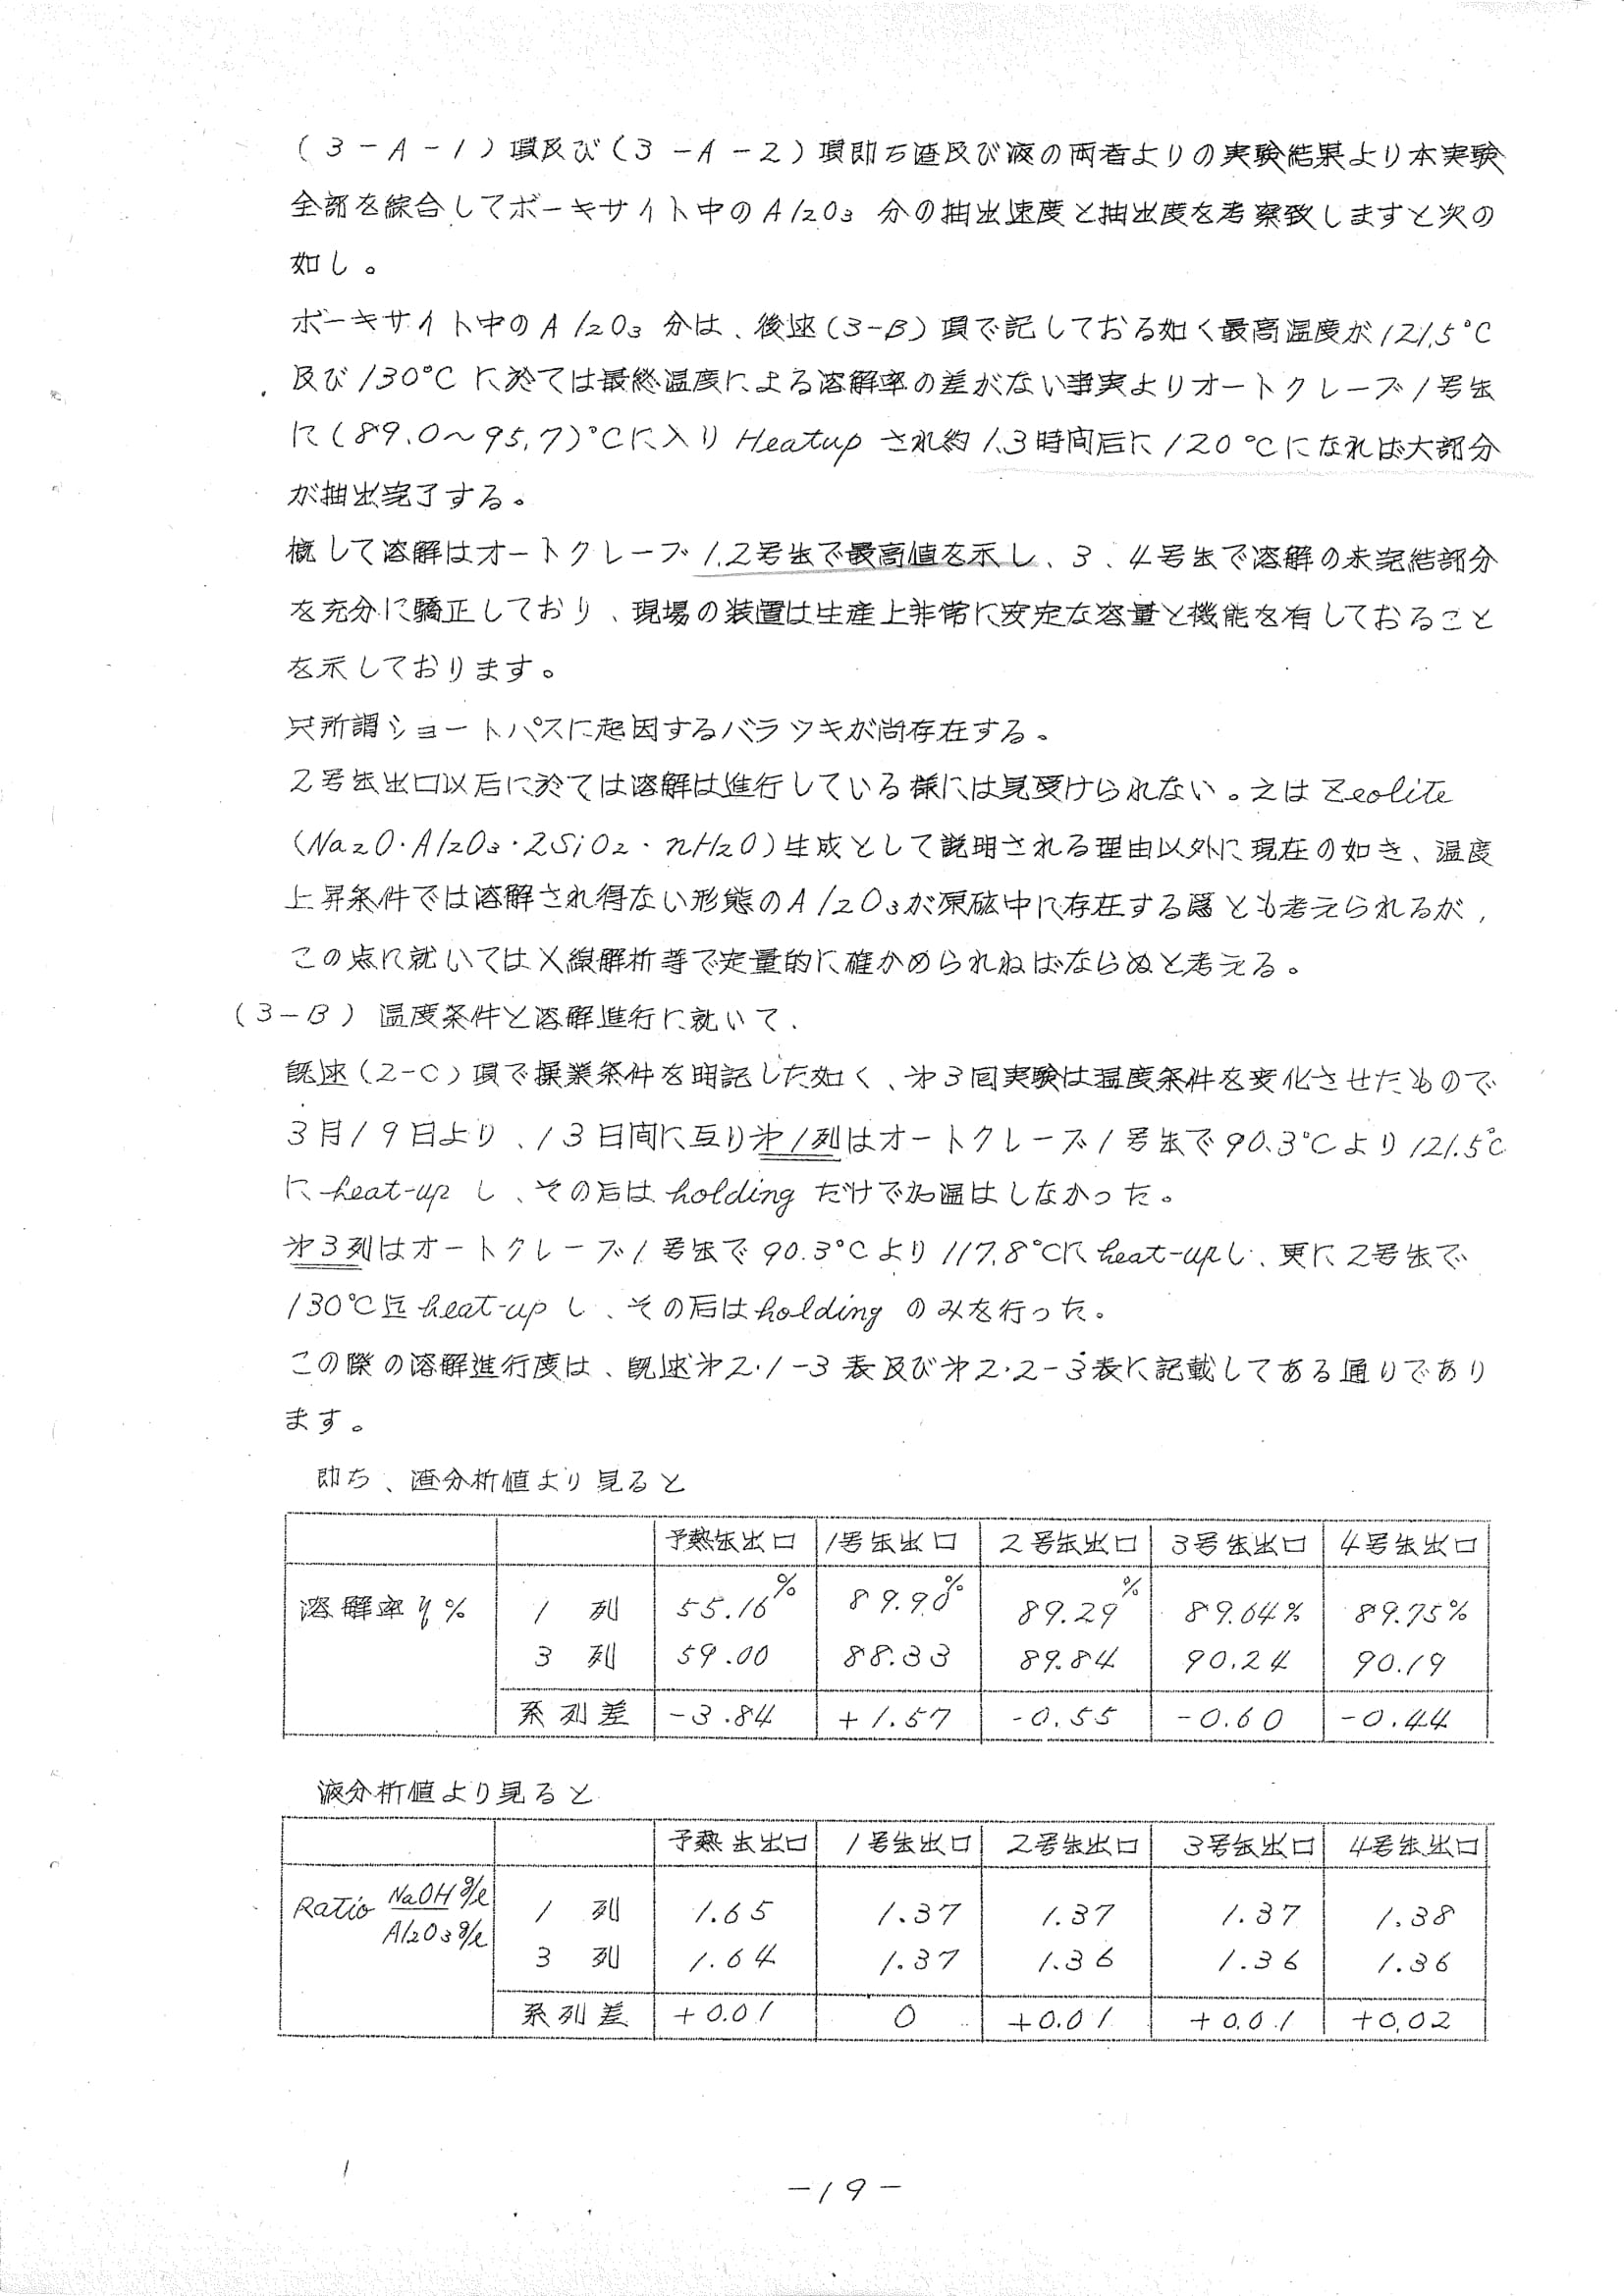 (3-A-1)項及び(3-A-2)項即ち渣及び液の両者よりの実験結果より本実験
全部を綜合してボーキサイト中のAl2O3分の抽出速度と抽出度を考察致しますと次の
如し。
ボーキサイト中のAl2O3分は、後述(3-B)項で記しておる如く最高温度が121.5℃
及び130℃に於ては最終温度による溶解率の差がない事実よりオートクレーブ1号缶
に(89.0〜95.7)℃に入りHeatupされ約1.3時間后に120℃になれば大部分
が抽出完了する。
概して溶解はオートクレーブ1.2号缶で最高値を示し、3、4号缶で溶解の未完結部分
を充分に驕正しており、現場の装置は生産上非常に安定な容量と機能を有しておること
を示しております。
只所謂ショートパスに起因するバラツキが尚存在する。
2号缶出口以后に於ては溶解は進行している様には見受けられない。之はZeolite
(Na2O・Al2O3・2SiO2・nH2O)生成として説明される理由以外に現在の如き、温度
上昇条件では溶解され得ない形態のAl2O3が原砿中に存在する為とも考えられるが,
この点に就いてはX線解析等で定量的に確かめられねばならぬと考える。
(3-B) 温度条件と溶解進行に就いて、
既述(2-C)項で操業条件を暗記した如く、㐧3回実験は温度条件を変化させたもので
3月19日より、13日間に亙り㐧1列はオートクレーブ1号缶で90.3℃より121.5℃
にheat-upし、その后はholdingだけで加温はしなかった。
㐧3列はオートクレーブ1号缶で90.3℃より117.8℃にheat-upし、更に2号缶で
130℃迄heat-upし、その后はholdingのみを行った。
この際の溶解進行度は、既述㐧2・1-3表及び㐧2・2-3表に記載してある通りであり
ます。
即ち、渣分析値より見ると
予熱缶出口 1号缶出口 2号缶出口 3号缶出口 4号缶出口
溶解率η% 1列 55.16% 89.90% 89.29% 89.64% 89.75%
3列 59.00 88.33 89.84 90.24 90.19
系列差 -3.84 +1.57 -0.55 -0.60 -0.44
液分析値より見ると
予熱缶出口 1号缶出口 2号缶出口 3号缶出口 4号缶出口
Ratio NaOH g/l / Al2O3 g/l 1列 1.65 1.37 1.37 1.37 1.38
3列 1.64 1.37 1.36 1.36 1.36
系列差 +0.01 0 +0.01 +0.01 +0.02
-19-